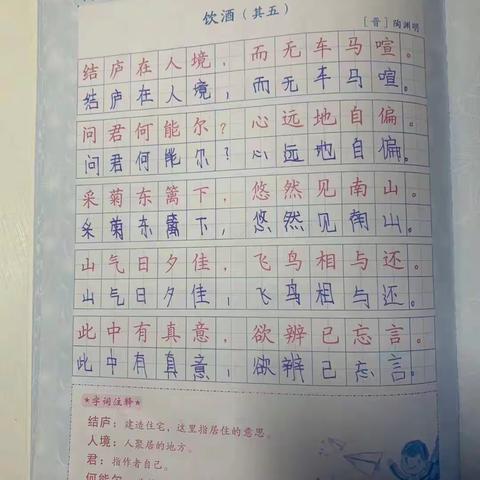 饮酒(其五)
[晋]陶渊明
结庐在人境，而无车马喧。
结庐在人境，而无车马喧。
问君何能尔？心远地自偏。
问君何能尔？心远地自偏。
采菊东篱下，悠然见南山。
采菊东篱下，悠然见南山。
山气日夕佳，飞鸟相与还。
山气日夕佳，飞鸟相与还。
此中有真意，欲辨已忘言。
此中有真意，欲辨已忘言。
★字词注释★
结庐：建造住宅，这里指居住的意思。
人境：人聚居的地方。
君：指作者自己。
何能尔：